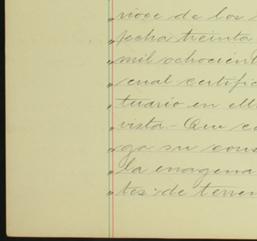 vioce de los
fecha treinta
mil ochocient
cual certific
tuario en ell
vista - Que e
ga su cons
la enagena
tos de terren